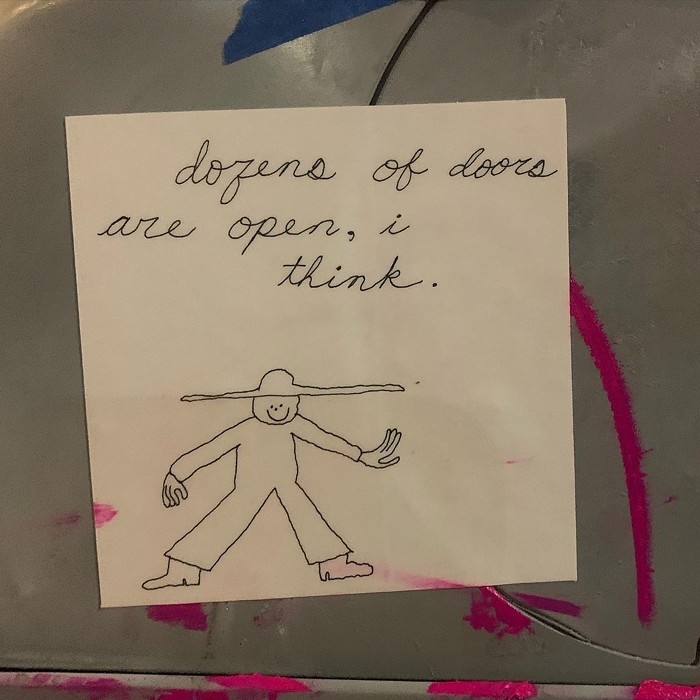 dozens of doors
are open, i
think.